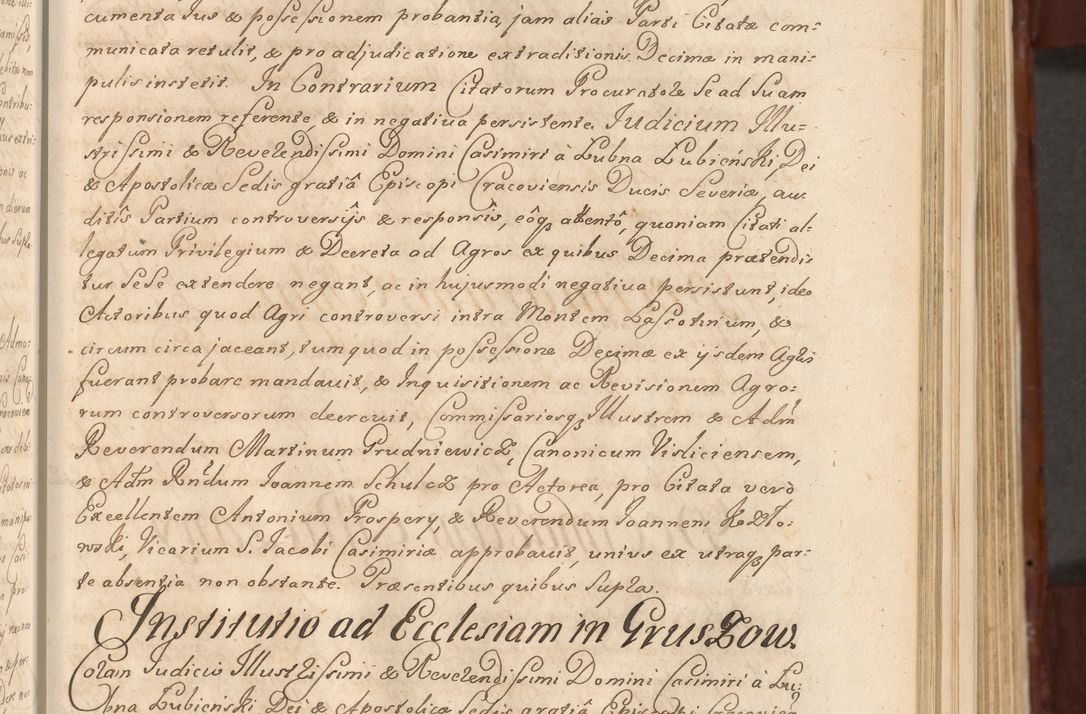 cumenta Jus & possessionem probantia, jam aliàs Parti Citatæ com-
municata retulit, & pro adjudicatione extraditionis Decimæ in mani-
pulis institit. In Contrarium Citatorum Procuratore se ad Suam
responsionem referente, & in negativa persistente. Judicium Illu-
strissimi & Reverendissimi Domini Casimiri à Lubna Lubieński, Dei
& Apostolicæ Sedis gratiâ Episcopi Cracoviensis Ducis Severiæ, au-
ditîs Partium controversijs & responsis, eôqz attentô, quoniam Citati al-
legatum Privilegium & Decreta ad Agros ex quibus Decima prætendi-
tur sese extendere negant, ac in hujusmodi negativa persistunt, ideo
Actoribus quod Agri controversi intra Montem Lassotinum, &
circum circa jaceant, tum quod in possessione Decimæ ex ijsdem Agris
fuerant probare mandavit, & Inquisitionem ac Revisionem Agro-
rum controversorum decrevit, Commissariosqz Illustrem & Adm
Reverendum Martinum Prudniewicz, Canonicum Visliciensem,
& Adm Rndum Joannem Schulcz pro Actorea, pro Citata verò
Excellentem Antonium Prospery, & Reverendum Joannem Kozło-
wski, Vicarium S. Jacobi Casimiriæ approbavit, unius ex utraqz par-
te absentia non obstante. Præsentibus quibus Supra.
Institutio ad Ecclesiam in Gruszow.
Coram Judicio Illustrissimi & Reverendissimi Domini Casimiri à Lu-
bna Lubieński Dei & Apostolicæ Sedis gratiâ Episcopi